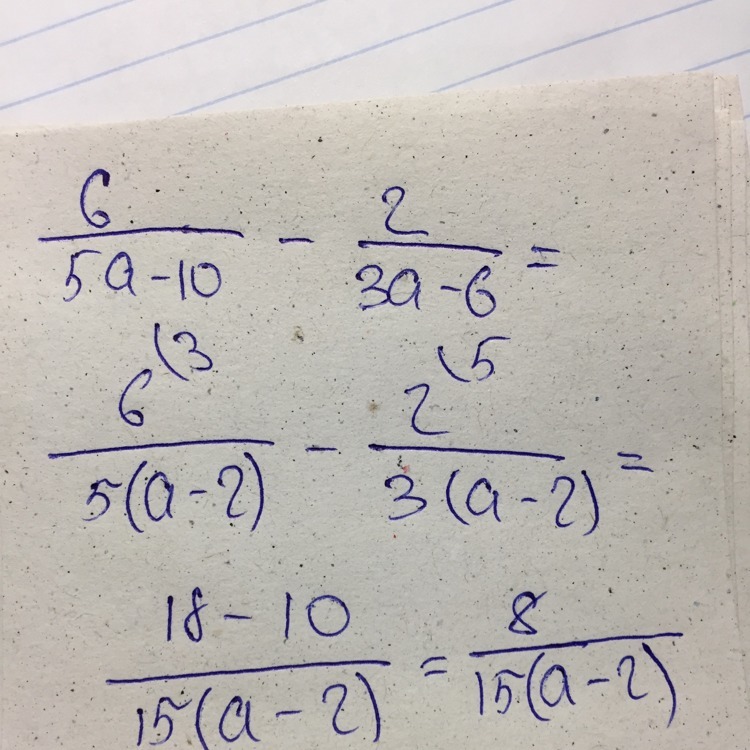 6/(5a-10) - 2/(3a-6) =
6\3/(5(a-2)) - 2\5/(3(a-2)) =
(18-10)/(15(a-2)) = 8/(15(a-2))